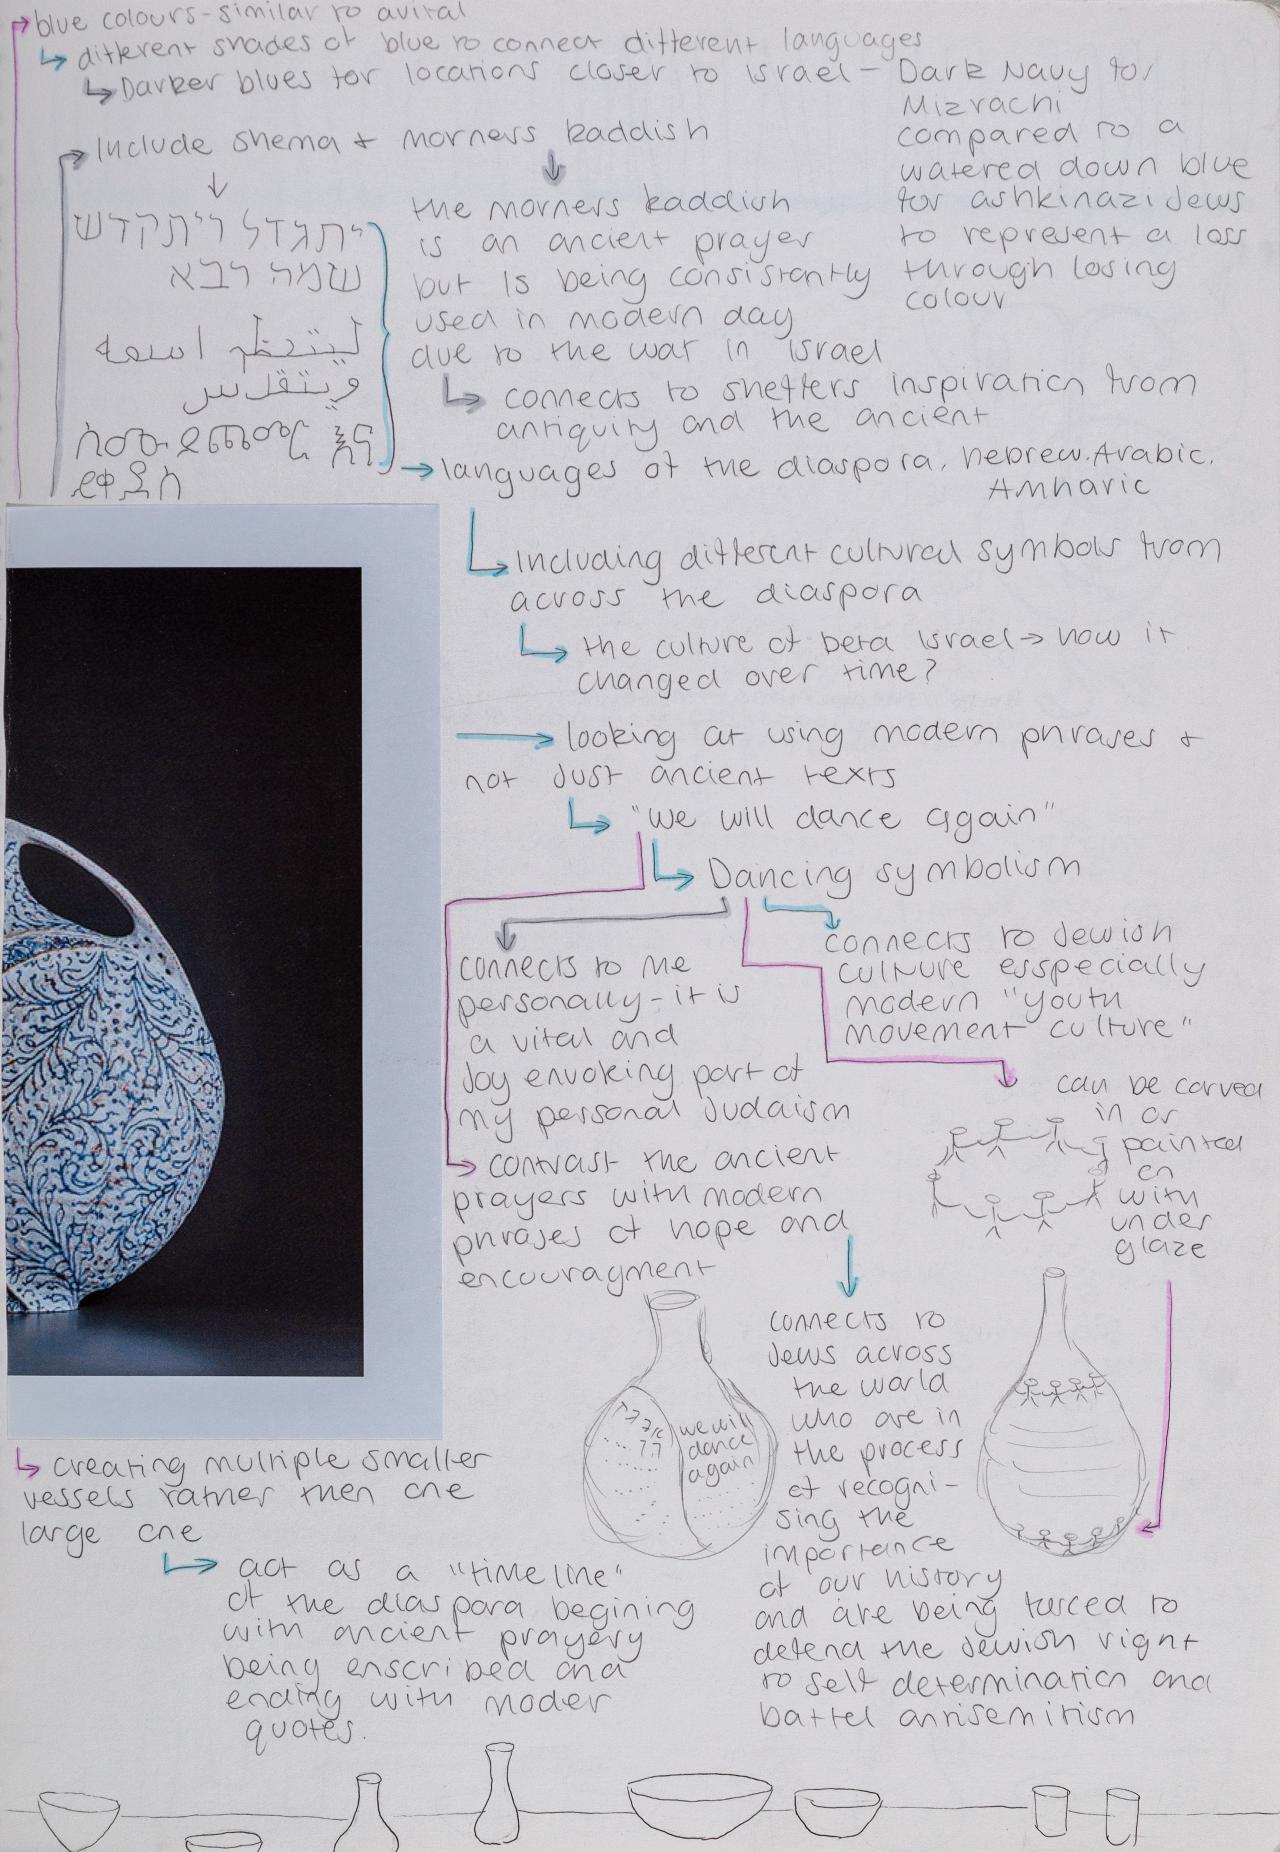 blue colours - similar to avital
different shades of blue to connect different languages
Darker blues for locations closer to Israel - Dark Navy for
Mizrachi
compared to a
watered down blue
for ashkinazi Jews
to represent a loss
through losing
colour
Include shema + morners kaddish
יתגדל ויתקדש
שמה רבא
ليتعظم اسمه
ويتقدس
the morners kaddish
is an ancient prayer
but is being consistantly
used in modern day
due to the war in israel
connects to shetters inspiration from
antiquity and the ancient
languages of the diaspora, hebrew, Arabic,
Amharic
Including different cultured symbols from
across the diaspora
the culture of beta israel → how it
changed over time?
looking at using modern phrases +
not Just ancient texts
"we will dance again"
Dancing symbolism
connects to me
personally - it is
a vital and
Joy envoking part of
my personal Judaism
connects to Jewish
culture esspecially
modern "youth
movement culture"
can be carved
in or
painted
on
with
under
glaze
contrast the ancient
prayers with modern
phrases of hope and
encouragment
we will
dance
again
connects to
Jews across
the world
who are in
the process
of recogni-
sing the
importance
of our history
and are being forced to
defend the Jewish right
to self determination and
battel antisemitism
creating multiple smaller
vessels rather then one
large one
act as a "time line"
of the diaspora begining
with ancient prayery
being enscribed and
ending with moder
quotes.